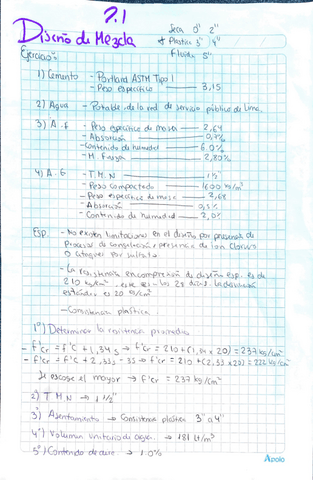 7.1
Diseño de Mezcla
Seca 0" 2"
* Plastica 3" 4"
Fluida 5"
Ejercicio:
1) Cemento - Portland ASTM Tipo 1
- Peso especifico 3,15
2) Agua - Potable de la red de servicio público de Lima.
3) A.F - Peso especifico de masa 2,64
- Absorción 0,7%
- Contenido de humedad 6.0%
- M. Fineza 2,80%
4) A.G - T.M.N 1½"
- Peso Compactado 1600 kg/m³
- Peso especifico de masa 2,68
- Absorción 0,5%
- Contenido de humedad 2,0%
Esp. - No existen limitaciones en el diseño por presencia de
Procesos de congelación o presencia de ion cloruro
o ataques por sulfato
- La resistencia en compresion de diseño esp. es de
210 kg/cm² este es a los 28 dias. La desviación
estándar es 20 kg/cm²
- Consistencia plástica
1º) Determinar la resistencia promedio
- f'cr = f'c + 1,34 s → f'cr = 210 + (1,34 x 20) = 237 kg/cm²
- f'cr = f'c + 2,33 s - 35 → f'cr = 210 + (2,33 x 20) = 222 kg/cm²
Se escoge el mayor → f'cr = 237 kg/cm²
2) T.M.N → 1½"
3) Asentamiento → Consistencia plástica 3" a 4"
4º) Volumen unitario de agua → 181 lt/m³
5º) Contenido de aire → 1.0%
Apolo